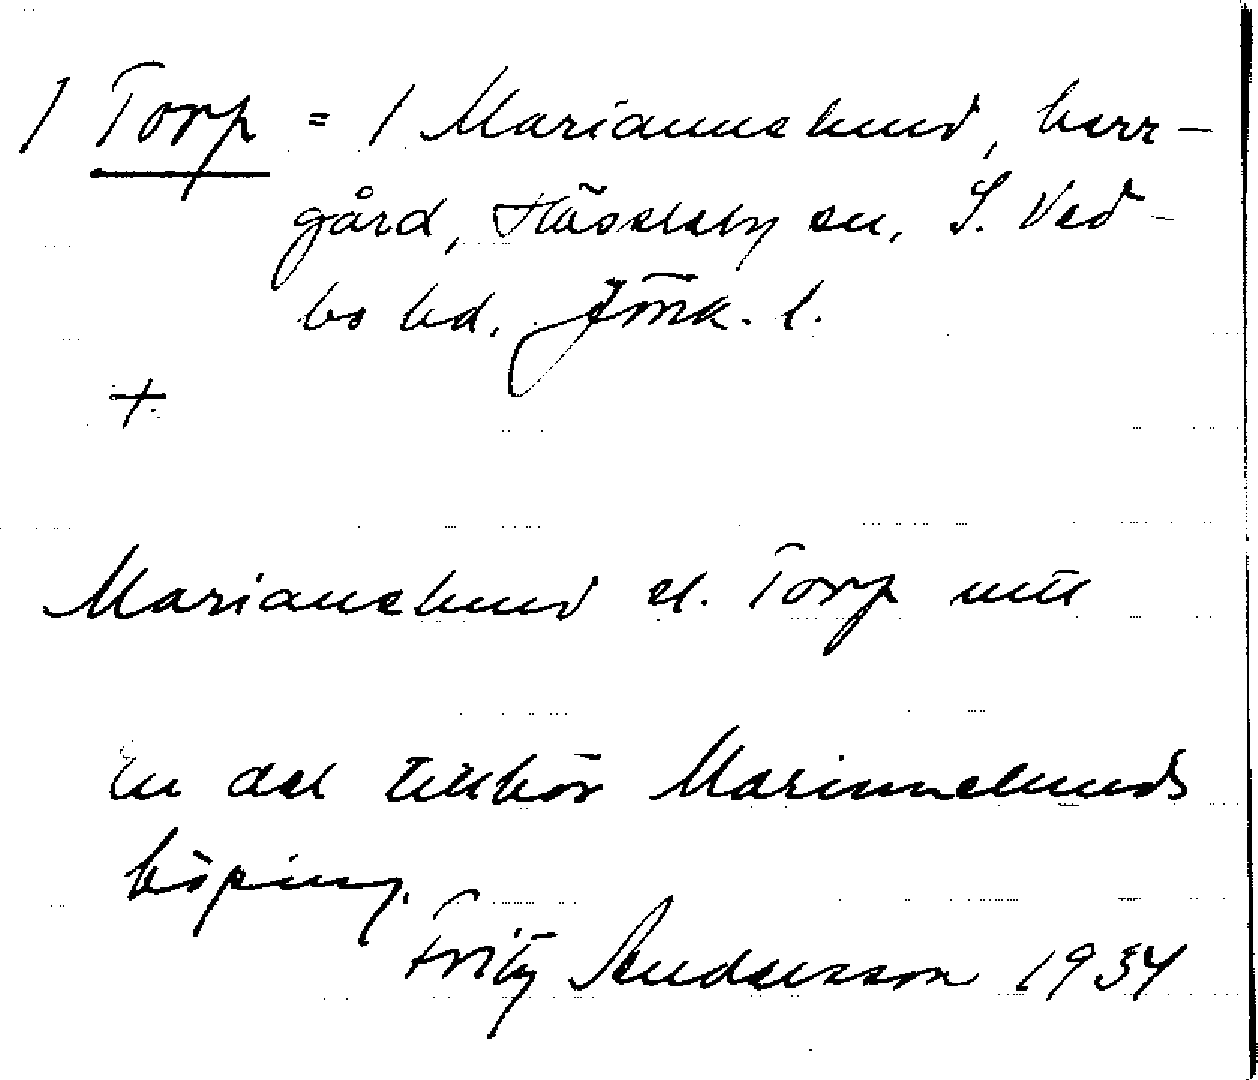 / Torp = / Mariannelund, herr-
gård, Hässleby sn, S. Ved-
bo hd. Jönk. l.
+
Marianelund el. Torp mtl
En del tillhör Mariannelunds
köping.
Fritz Andersson 1934